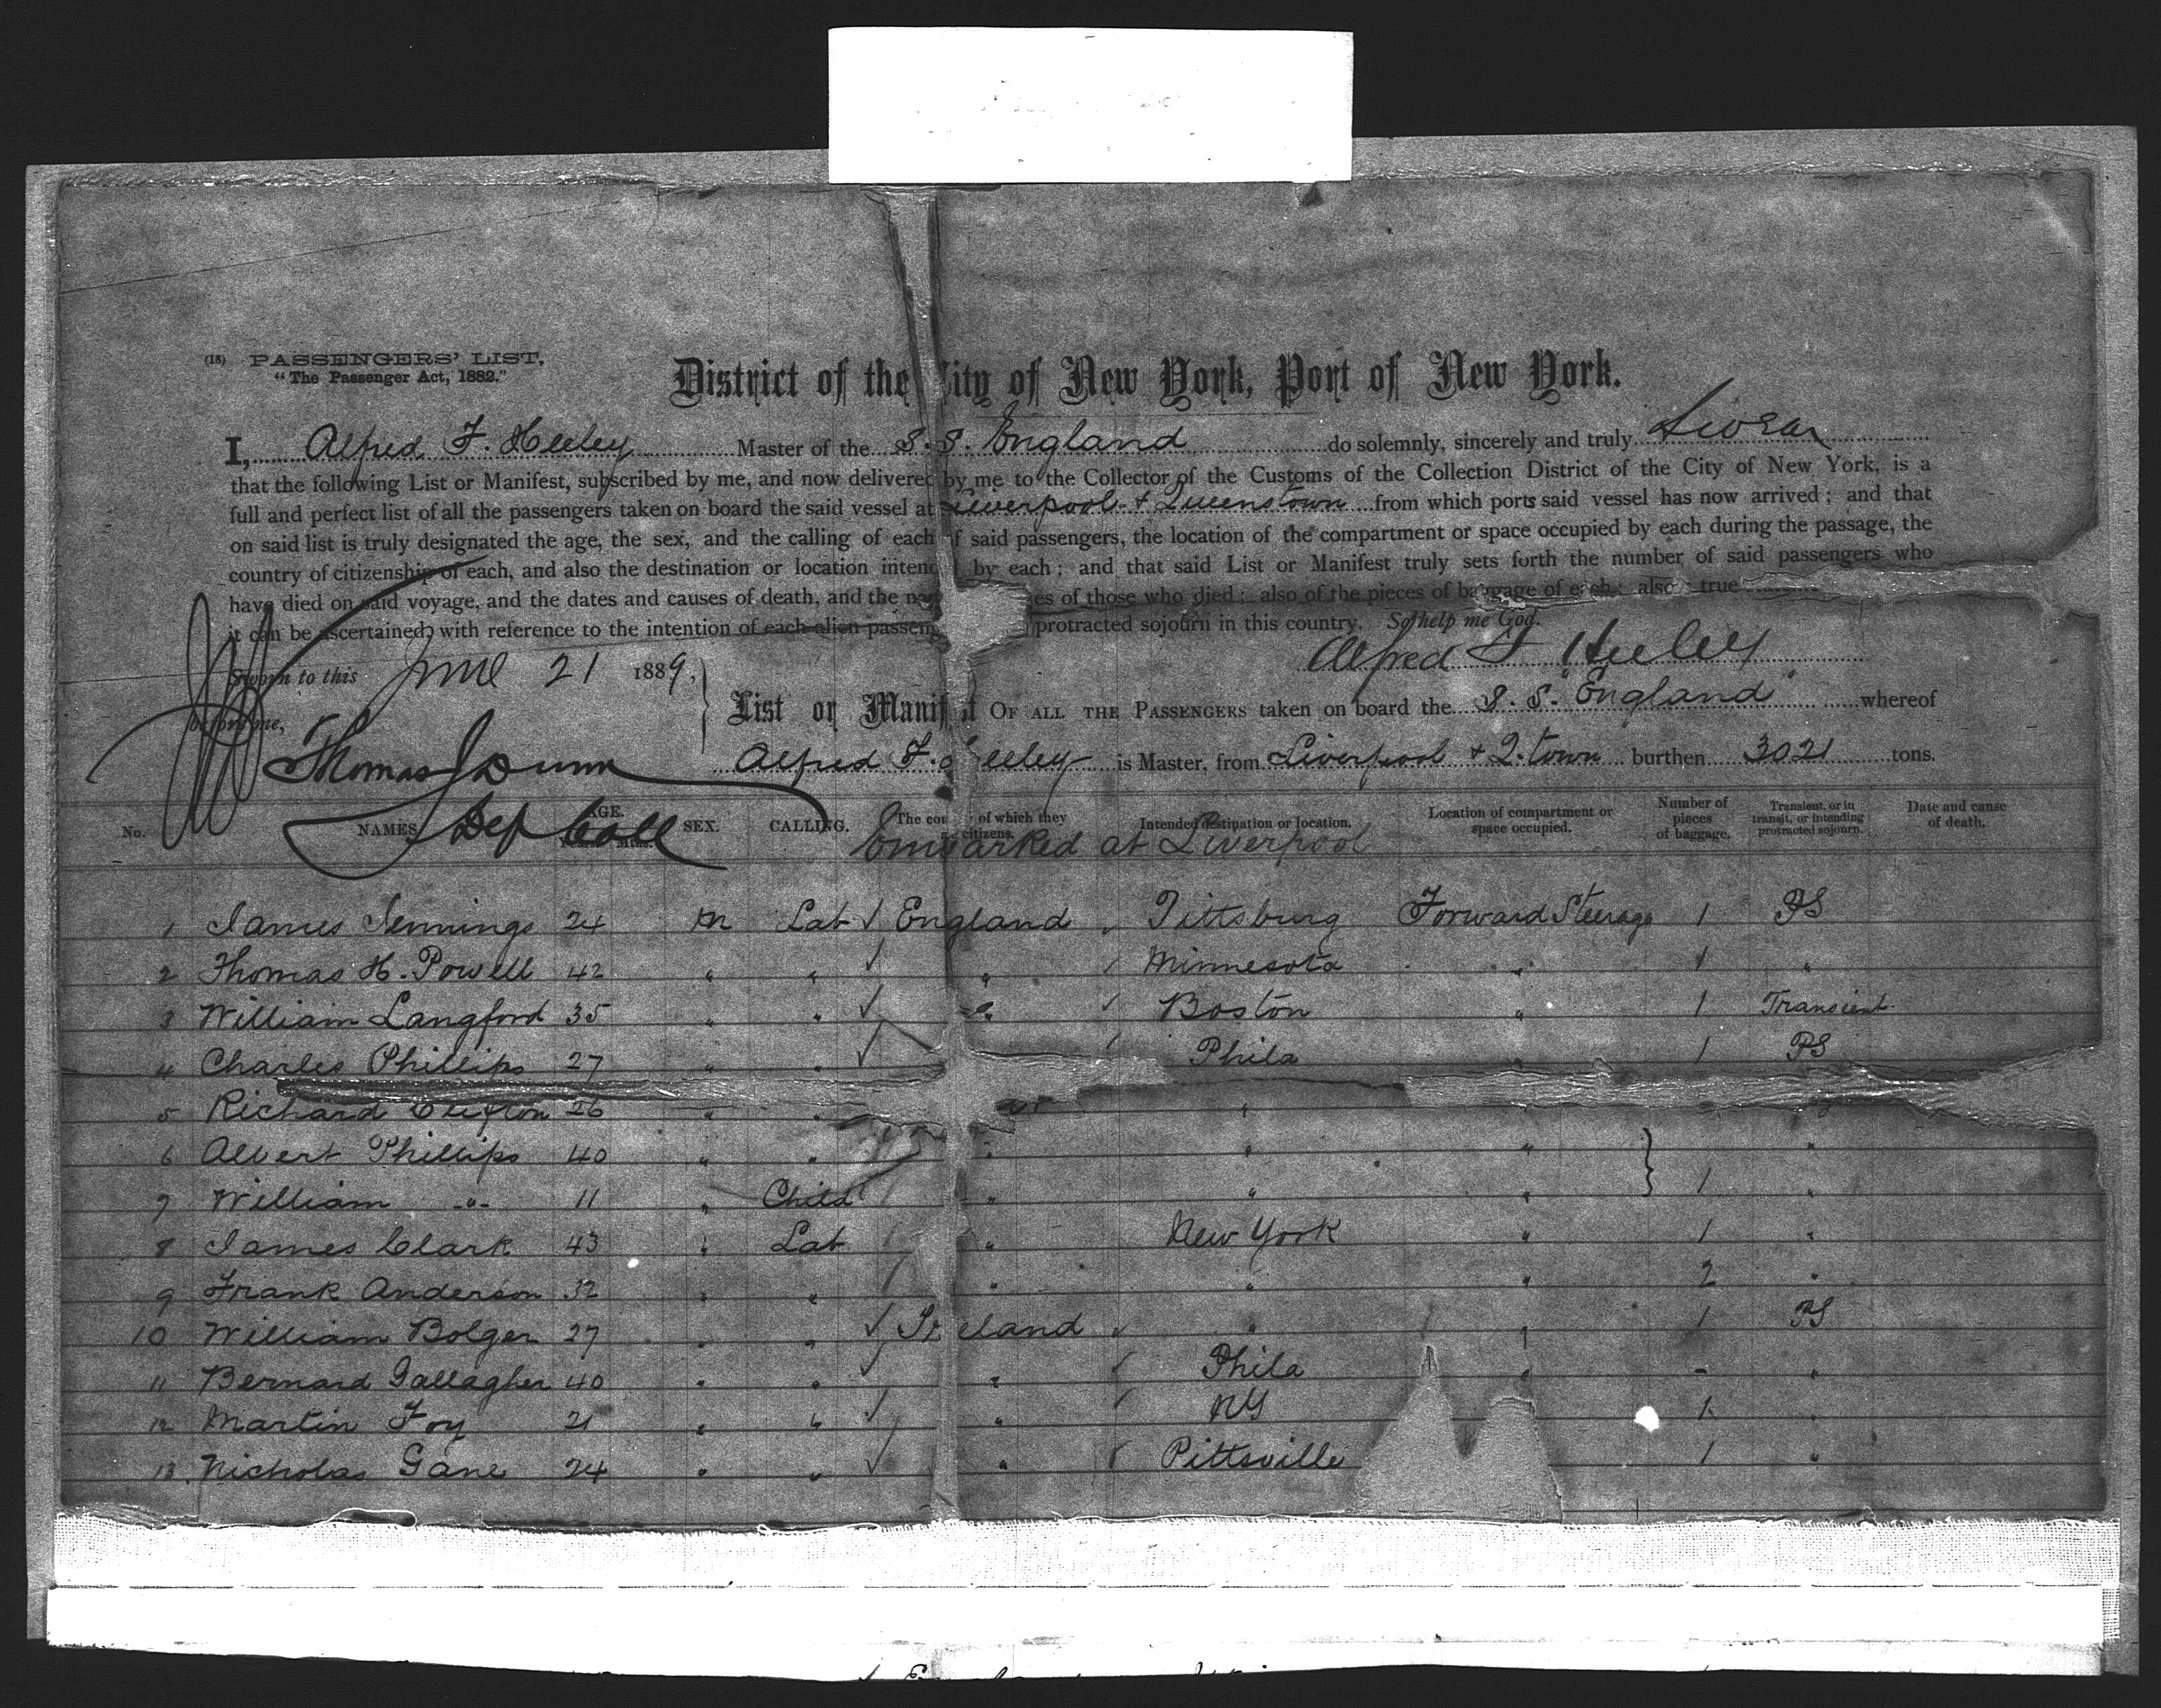 (18) PASSENGERS' LIST,
"The Passenger Act, 1882."
District of the City of New York, Port of New York.
I, Alfred F. Heeley Master of the S.S. England do solemnly, sincerely and truly Swear
that the following List or Manifest, subscribed by me, and now delivered by me to the Collector of the Customs of the Collection District of the City of New York, is a
full and perfect list of all the passengers taken on board the said vessel at Liverpool & Queenstown from which ports said vessel has now arrived; and that
on said list is truly designated the age, the sex, and the calling of each of said passengers, the location of the compartment or space occupied by each during the passage, the
country of citizenship of each, and also the destination or location intend by each; and that said List or Manifest truly sets forth the number of said passengers who
have died on said voyage, and the dates and causes of death, and the na es of those who died; also of the pieces of baggage of each; also true
it can be ascertained, with reference to the intention of each alien passen protracted sojourn in this country. So help me God.
Sworn to this June 21 1889, Alfred F Heeley
before me,
List or Manifest OF ALL THE PASSENGERS taken on board the S. S. "England" whereof
Thomas J Dunn Alfred F. Heeley is Master, from Liverpool & Q. town burthen 3021 tons.
Dep Coll
No. NAMES AGE. Years Mths. SEX. CALLING. The cou of which they citizens. Intended destination or location. Location of compartment or space occupied. Number of pieces of baggage. Transient, or in transit, or intending protracted sojourn. Date and cause of death.
Embarked at Liverpool
1 James Jennings 24 m Lab ✓ England Pittsburg Forward Steerage 1 PS
2 Thomas H. Powell 42 " " ✓ " Minnesota " 1 "
3 William Langford 35 " " ✓ " Boston " 1 Transient
4 Charles Phillips 27 " " ✓ Phila " 1 PS
5 Richard Clifton 26 " " "
6 Albert Phillips 40 " " " " " "
7 William -"- 11 " Child " " " 1 "
8 James Clark 43 " Lab " New York " 1 "
9 Frank Anderson 32 " " " " " 2 "
10 William Bolger 27 " " ✓ Ireland " " 1 PS
11 Bernard Gallagher 40 " " ✓ " Phila " - "
12 Martin Foy 21 " " ✓ " NY 1 "
13 Nicholas Gane 24 " " ✓ " Pittsville 1 "